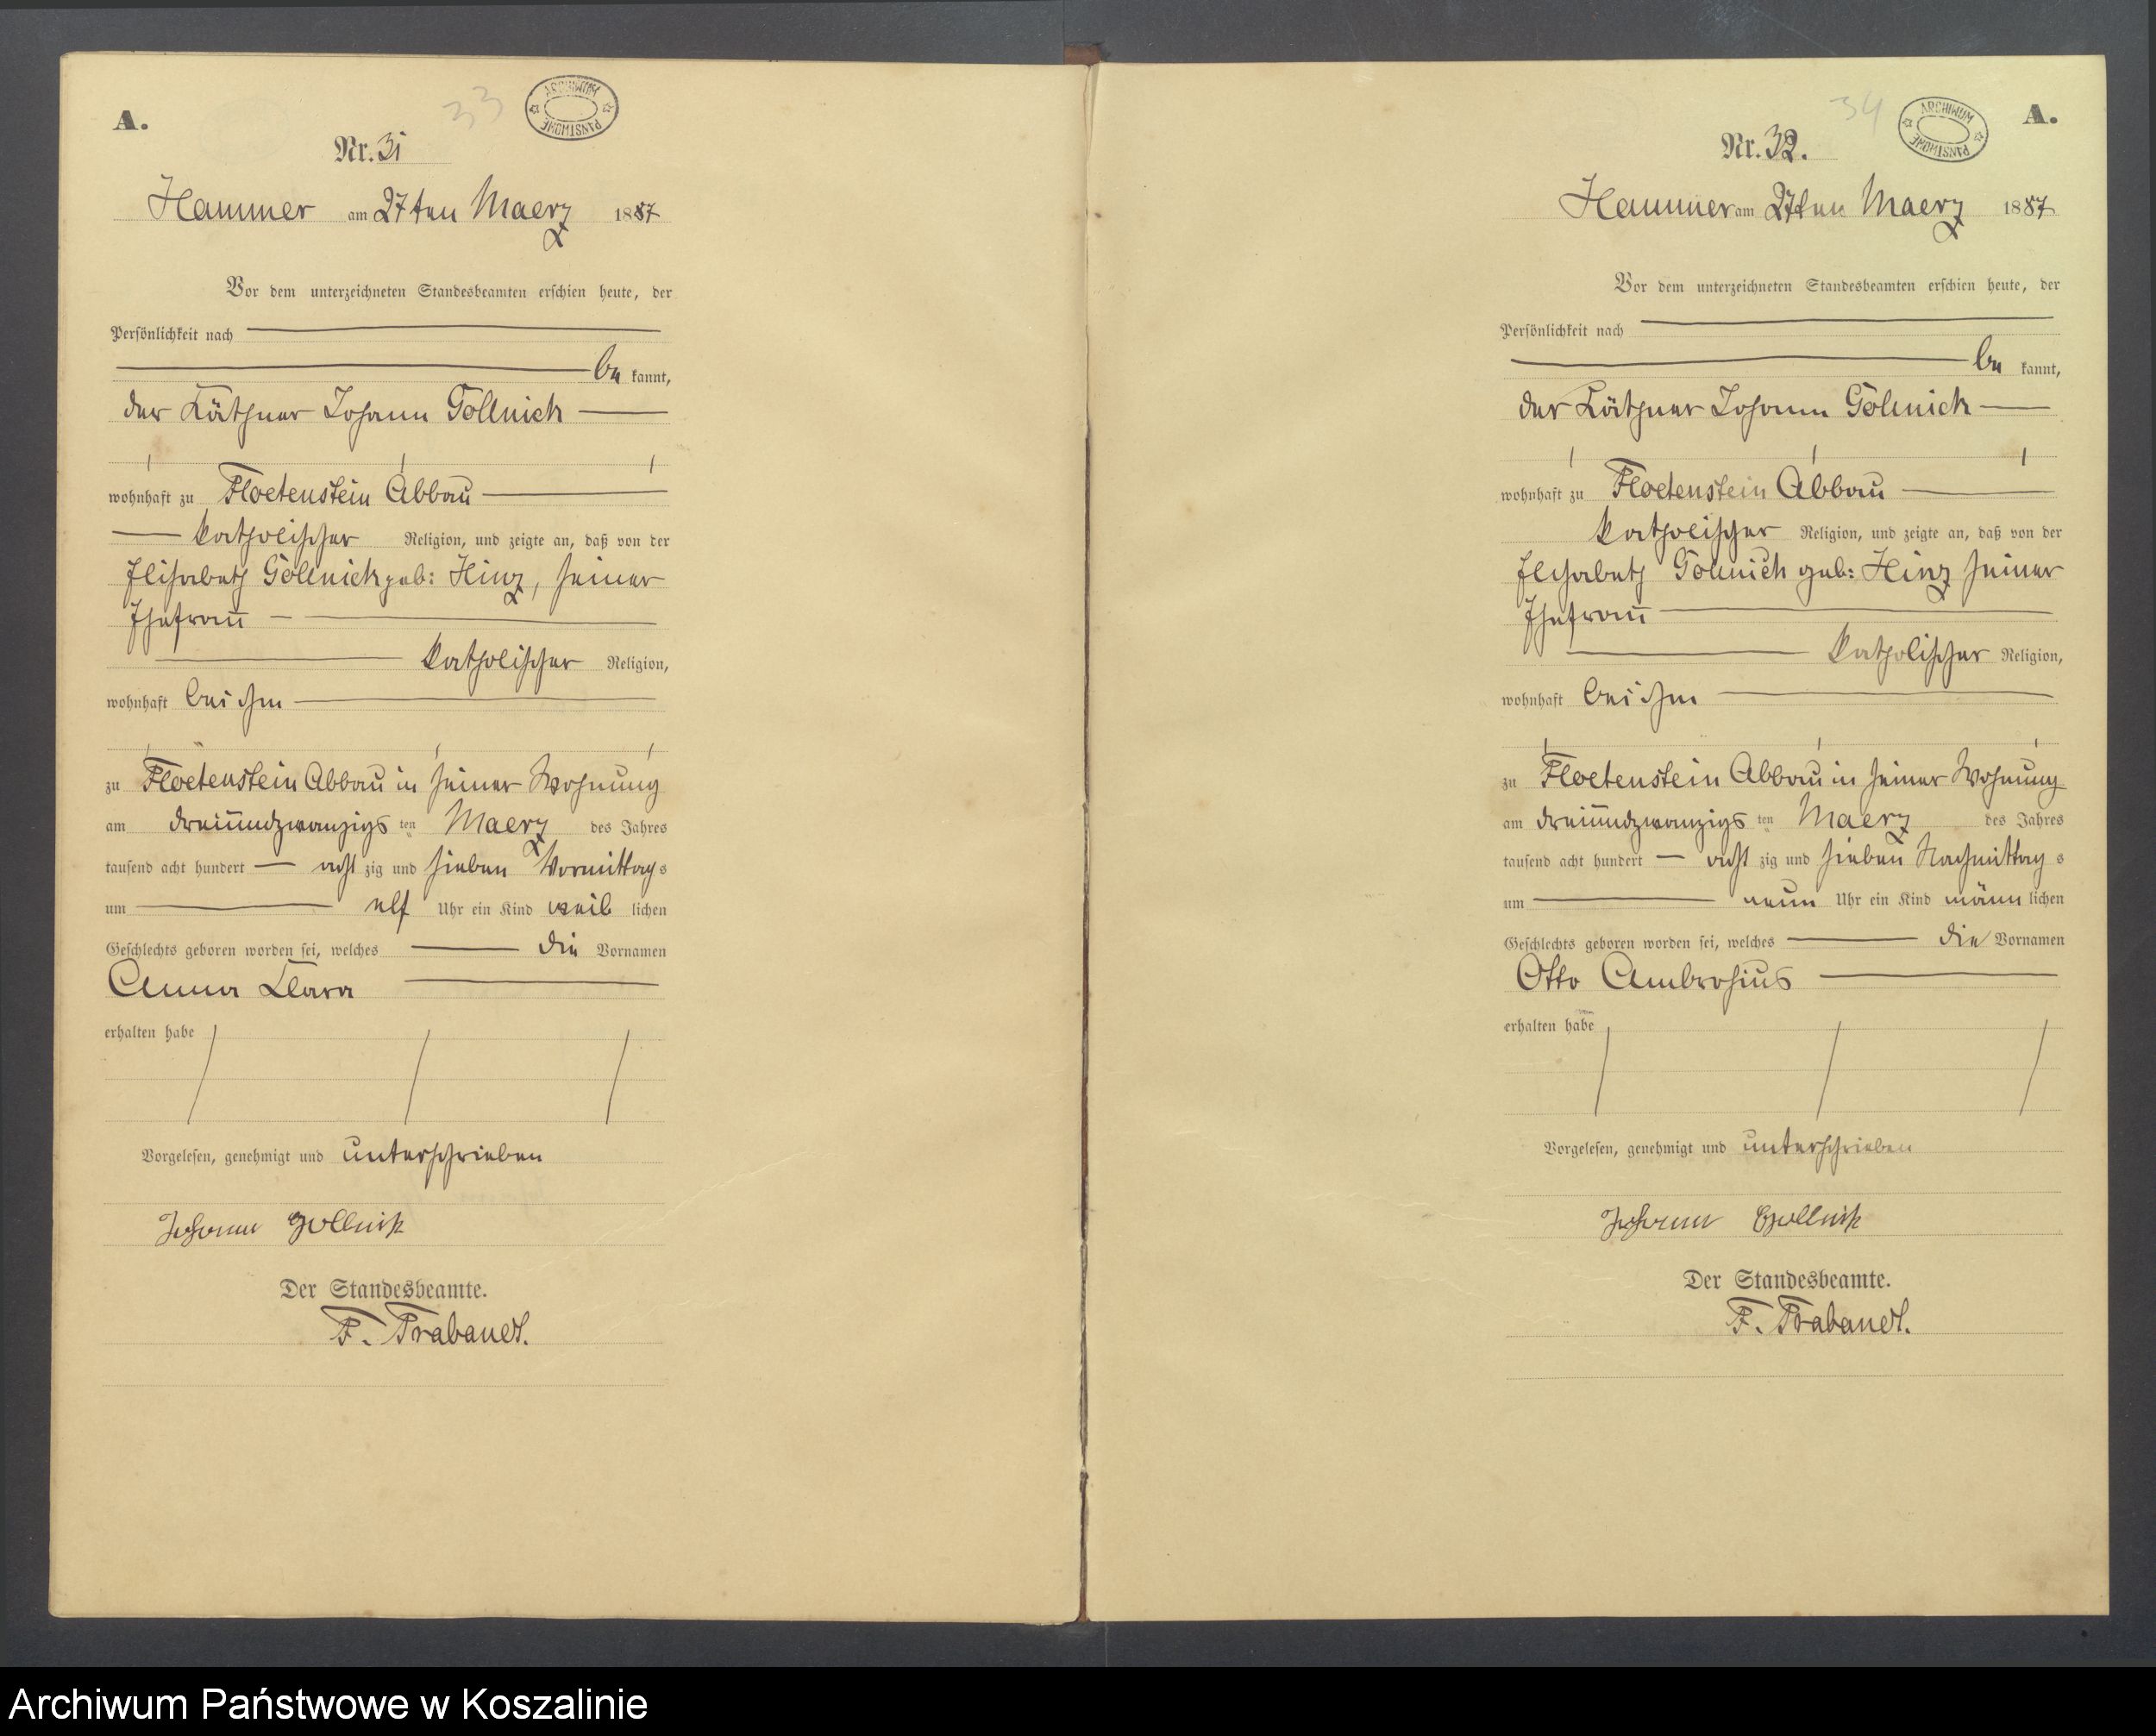 A.
33
ARCHIWUM PAŃSTWOWE
Nr. 31
Hammer am 27ten Maerz 1887
Vor dem unterzeichneten Standesbeamten erschien heute, der
Persönlichkeit nach
be kannt,
der Käthner Johann Gollnick
wohnhaft zu Floetenstein Abbau
katholischer Religion, und zeigte an, daß von der
Elisabeth Gollnick geb: Hinz, seiner
Ehefrau
katholischer Religion,
wohnhaft bei ihm
zu Floetenstein Abbau in seiner Wohnung
am dreiundzwanzigs ten Maerz des Jahres
tausend acht hundert acht zig und sieben Vormittag s
um elf Uhr ein Kind weib lichen
Geschlechts geboren worden sei, welches die Vornamen
Anna Clara
erhalten habe
Vorgelesen, genehmigt und unterschrieben
Johann Gollnick
Der Standesbeamte.
F. Trabandt.
34
ARCHIWUM PAŃSTWOWE
A.
Nr. 32.
Hammer am 27ten Maerz 1887
Vor dem unterzeichneten Standesbeamten erschien heute, der
Persönlichkeit nach
be kannt,
der Käthner Johann Gollnick
wohnhaft zu Floetenstein Abbau
katholischer Religion, und zeigte an, daß von der
Elisabeth Gollnick geb: Hinz seiner
Ehefrau
katholischer Religion,
wohnhaft bei ihm
zu Floetenstein Abbau in seiner Wohnung
am dreiundzwanzigs ten Maerz des Jahres
tausend acht hundert acht zig und sieben Nachmittag s
um neun Uhr ein Kind männ lichen
Geschlechts geboren worden sei, welches die Vornamen
Otto Ambrosius
erhalten habe
Vorgelesen, genehmigt und unterschrieben
Johann Gollnick
Der Standesbeamte.
F. Trabandt.
Archiwum Państwowe w Koszalinie